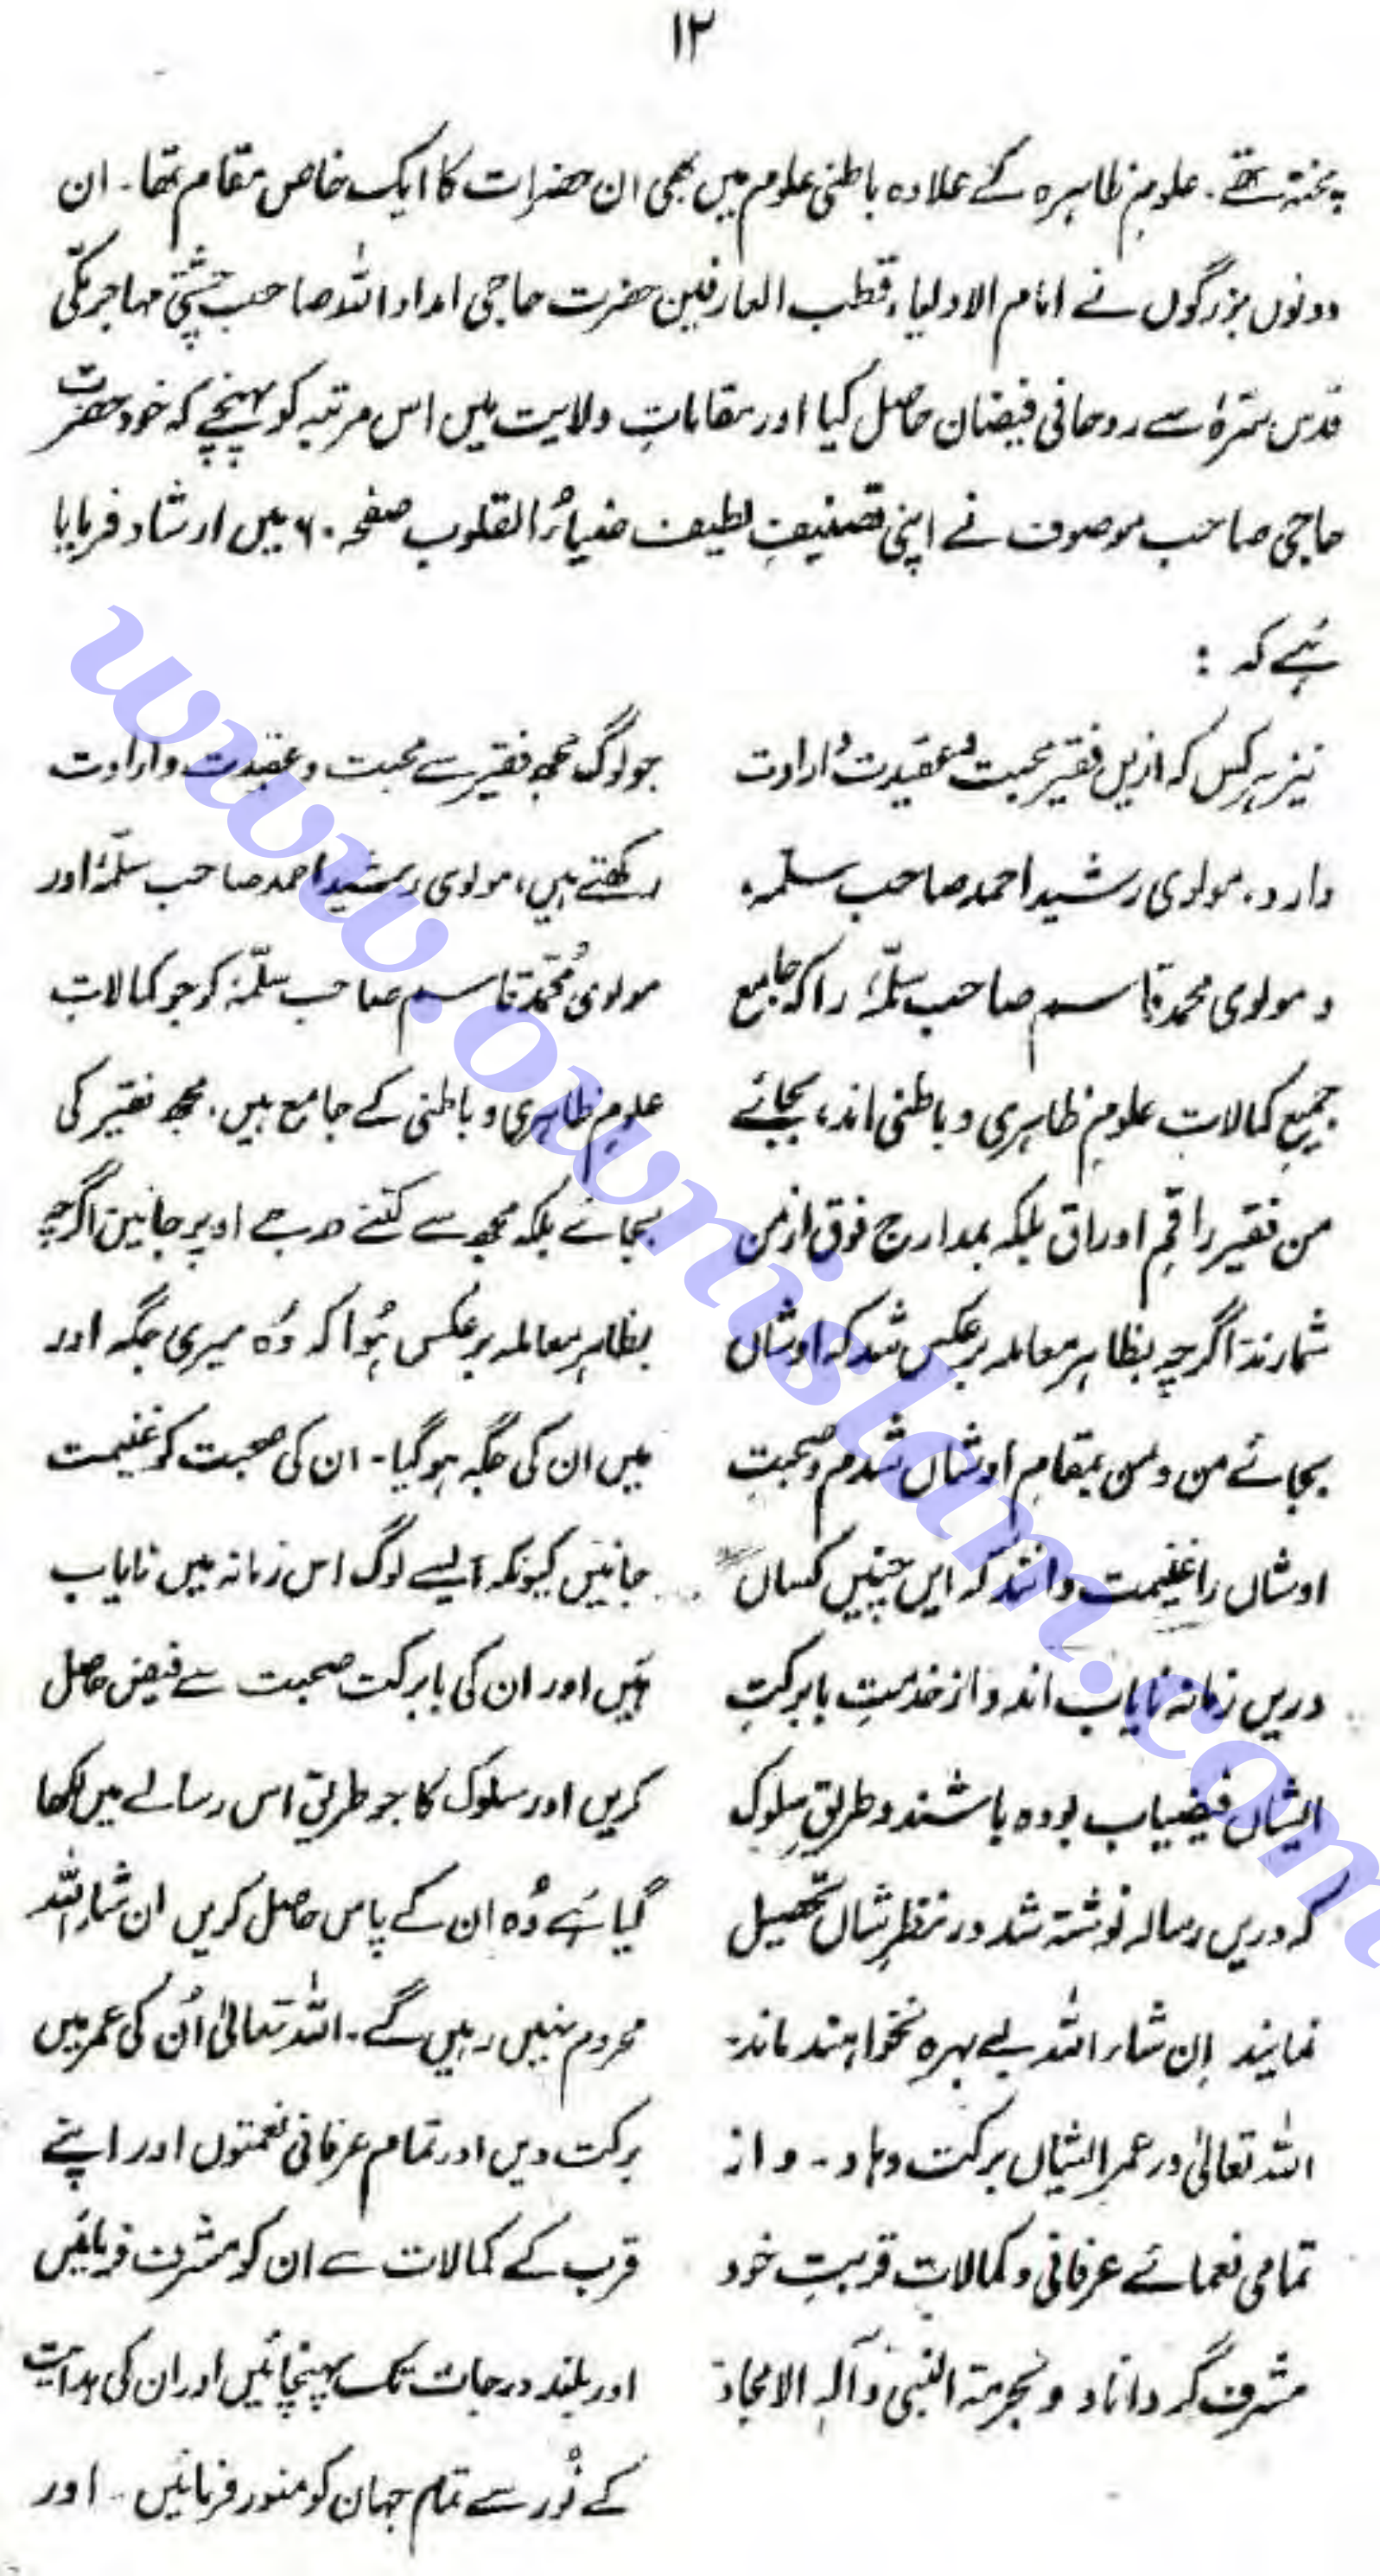 ۱۲
پختہ تھے۔ علومِ ظاہرہ کے علاوہ باطنی علوم میں بھی ان حضرات کا ایک خاص مقام تھا۔ ان
دونوں بزرگوں نے امام الاولیاء، قطب العارفین حضرت حاجی امداد اللہ صاحب چشتی مہاجر مکّی
قدس سّرہٗ سے روحانی فیضان حاصل کیا اور مقاماتِ ولایت میں اس مرتبہ کو پہنچے کہ خود حضرت
حاجی صاحب موصوف نے اپنی تصنیفِ لطیف ضیاءُ القلوب صفحہ ۶۰ میں ارشاد فرمایا
ہَے کہ :
نیز ہر کس کہ ازیں فقیر محبت و عقیدت و ارادت
دارد، مولوی رشید احمد صاحب سلمہ،
و مولوی محمد قاسم صاحب سلّمہٗ را کہ جامع
جمیع کمالاتِ علومِ ظاہری و باطنی اند، بجائے
من فقیر راقمِ اوراق بلکہ بمدارج فوق از من
شمارند اگرچہ بظاہر معاملہ برعکس شد کہ اوشاں
بجائے من و من بمقامِ اوشاں شدم و صحبتِ
اوشاں را غنیمت دانند کہ ایں چنیں کساں
دریں زمانہ نایاب اند و از خدمتِ بابرکتِ
ایشاں فیضیاب بودہ باشند و طریقِ سلوک
کہ دریں رسالہ نوشتہ شد در نظرِ شاں تحصیل
نمایند اِن شاء اللہ بے بہرہ نخواہند ماند۔
اللہ تعالیٰ در عمر ایشاں برکت دہاد۔ و از
تمامی نعمائے عرفانی و کمالاتِ قربتِ خود
مشرف گرداناد و بحرمتہ النبی وآلہِ الامجاد۔
جو لوگ مجھ فقیر سے محبت و عقیدت و ارادت
رکھتے ہیں، مولوی رشید احمد صاحب سلّمہٗ اور
مولوی مُحمّد قاسم صاحب سلّمہٗ کو جو کمالاتِ
علومِ ظاہری و باطنی کے جامع ہیں، مجھ فقیر کی
بجائے بلکہ مجھ سے کتنے درجے اوپر جانیں اگرچہ
بظاہر معاملہ برعکس ہُوا کہ وُہ میری جگہ اور
میں ان کی جگہ ہو گیا۔ ان کی صحبت کو غنیمت
جانیں کیونکہ ایسے لوگ اس زمانہ میں نایاب
ہَیں اور ان کی بابرکت صحبت سے فیض حاصل
کریں اور سلوک کا جو طریق اس رسالے میں لکھا
گیا ہَے وُہ ان کے پاس حاصل کریں ان شاء اللہ
محروم نہیں رہیں گے۔ اللہ تعالیٰ اُن کی عمر میں
برکت دیں اور تمام عرفانی نعمتوں اور اپنے
قرب کے کمالات سے ان کو مشرف فرمائیں
اور بلند درجات تک پہنچائیں اور ان کی ہدایت
کے نُور سے تمام جہان کو منور فرمائیں۔ اور
www.ownislam.com